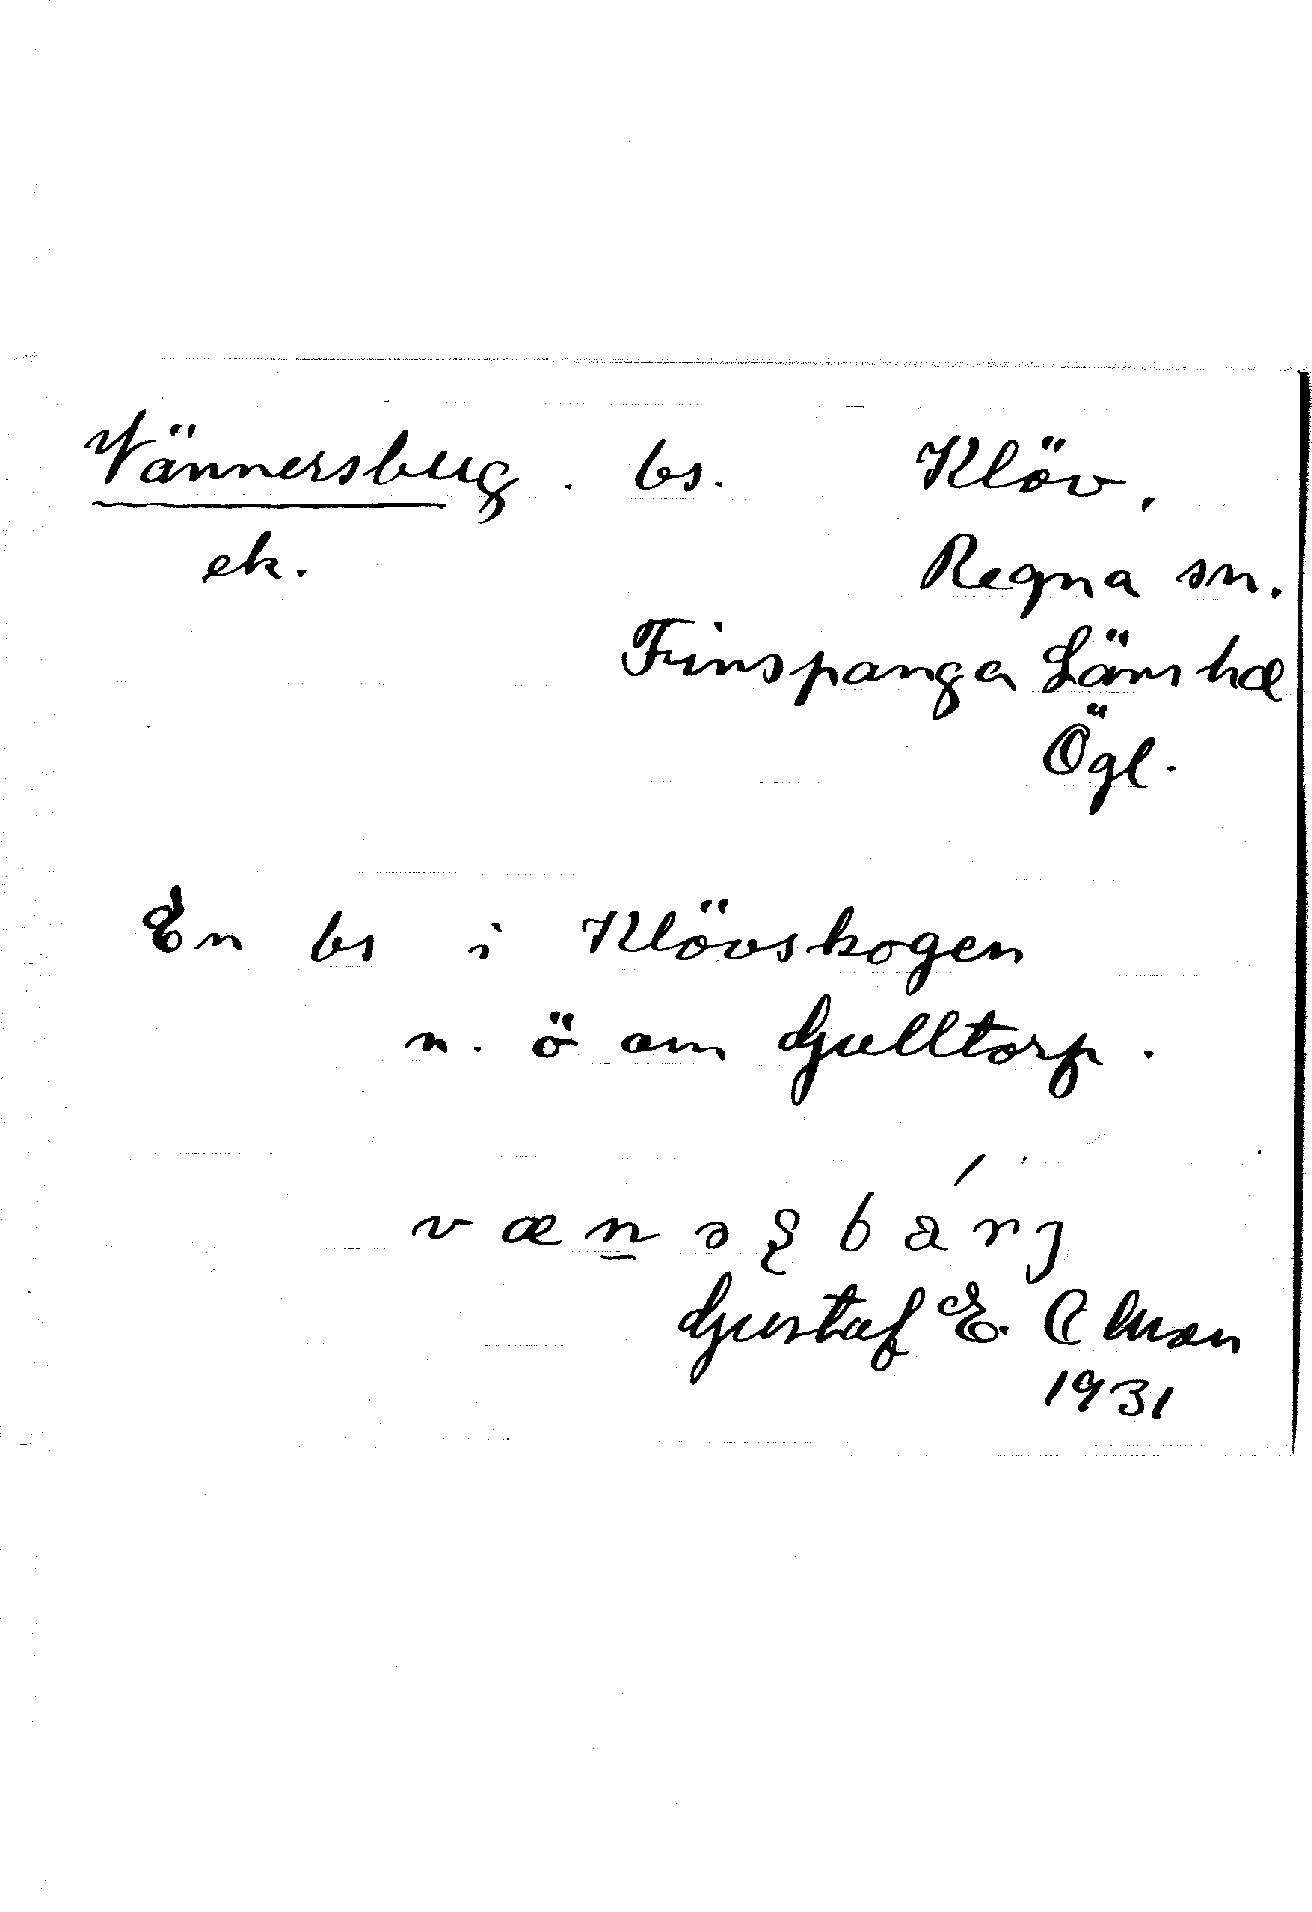 Vännersburg. bs. Klöv,
ek. Regna sn.
Finspanga Läns hd
Ögl.
En bs i Klövskogen
n. ö om Gulltorp.
Gustaf E.
1931